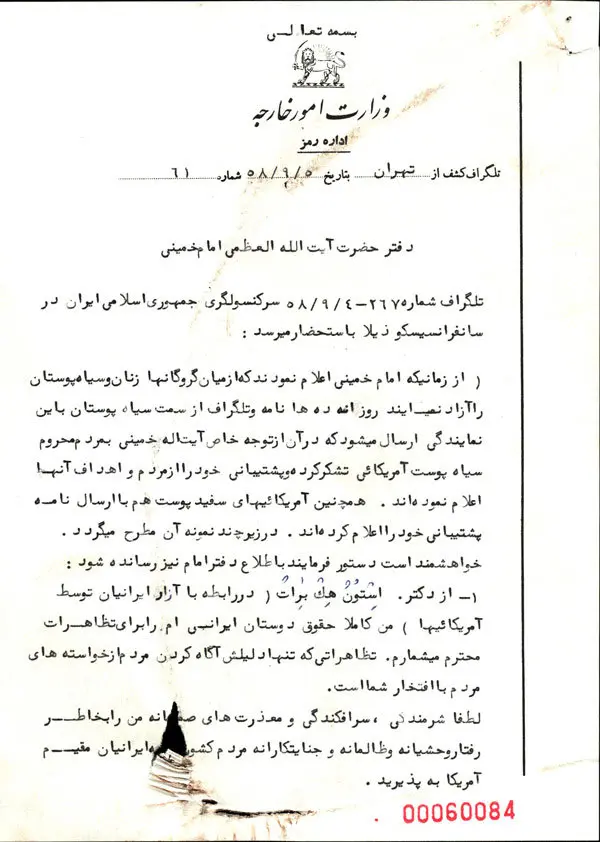 بسمه تعالی
وزارت امور خارجه
اداره رمز
تلگراف کشف از تهران بتاریخ ۵۸/۹/۵ شماره ۶۱
دفتر حضرت آیت الله العظمی امام خمینی
تلگراف شماره ۲۶۷-۵۸/۹/۴ سرکنسولگری جمهوری اسلامی ایران در
سانفرانسیسکو ذیلا باستحضار میرسد :
( از زمانیکه امام خمینی اعلام نمودند که از میان گروگانها زنان و سیاه پوستان
را آزاد نمایند روزانه ده ها نامه وتلگراف از سمت سیاه پوستان باین
نمایندگی ارسال میشود که در آن از توجه خاص آیت اله خمینی بمردم محروم
سیاه پوست آمریکائی تشکر کرده و پشتیبانی خود را از مردم و اهداف آنها
اعلام نموده اند . همچنین آمریکائیهای سفید پوست هم با ارسال نامه
پشتیبانی خود را اعلام کرده اند . در زیر چند نمونه آن مطرح میگردد .
خواهشمند است دستور فرمایند باطلاع دفتر امام نیز رسانده شود :
۱- از دکتر . اِستُونْ هِكْ بِراتْ ( در رابطه با آزار ایرانیان توسط
آمریکائیها ) من کاملا حقوق دوستان ایرانی ام را برای تظاهرات
محترم میشمارم . تظاهراتی که تنها دلیلش آگاه کردن مردم از خواسته های
مردم با افتخار شما است .
لطفا شرمندگی ، سرافکندگی و معذرت های صمیمانه من را بخاطر
رفتار وحشیانه و ظالمانه و جنایتکارانه مردم کشورم ایرانیان مقیم
آمریکا به پذیرید .
00060084